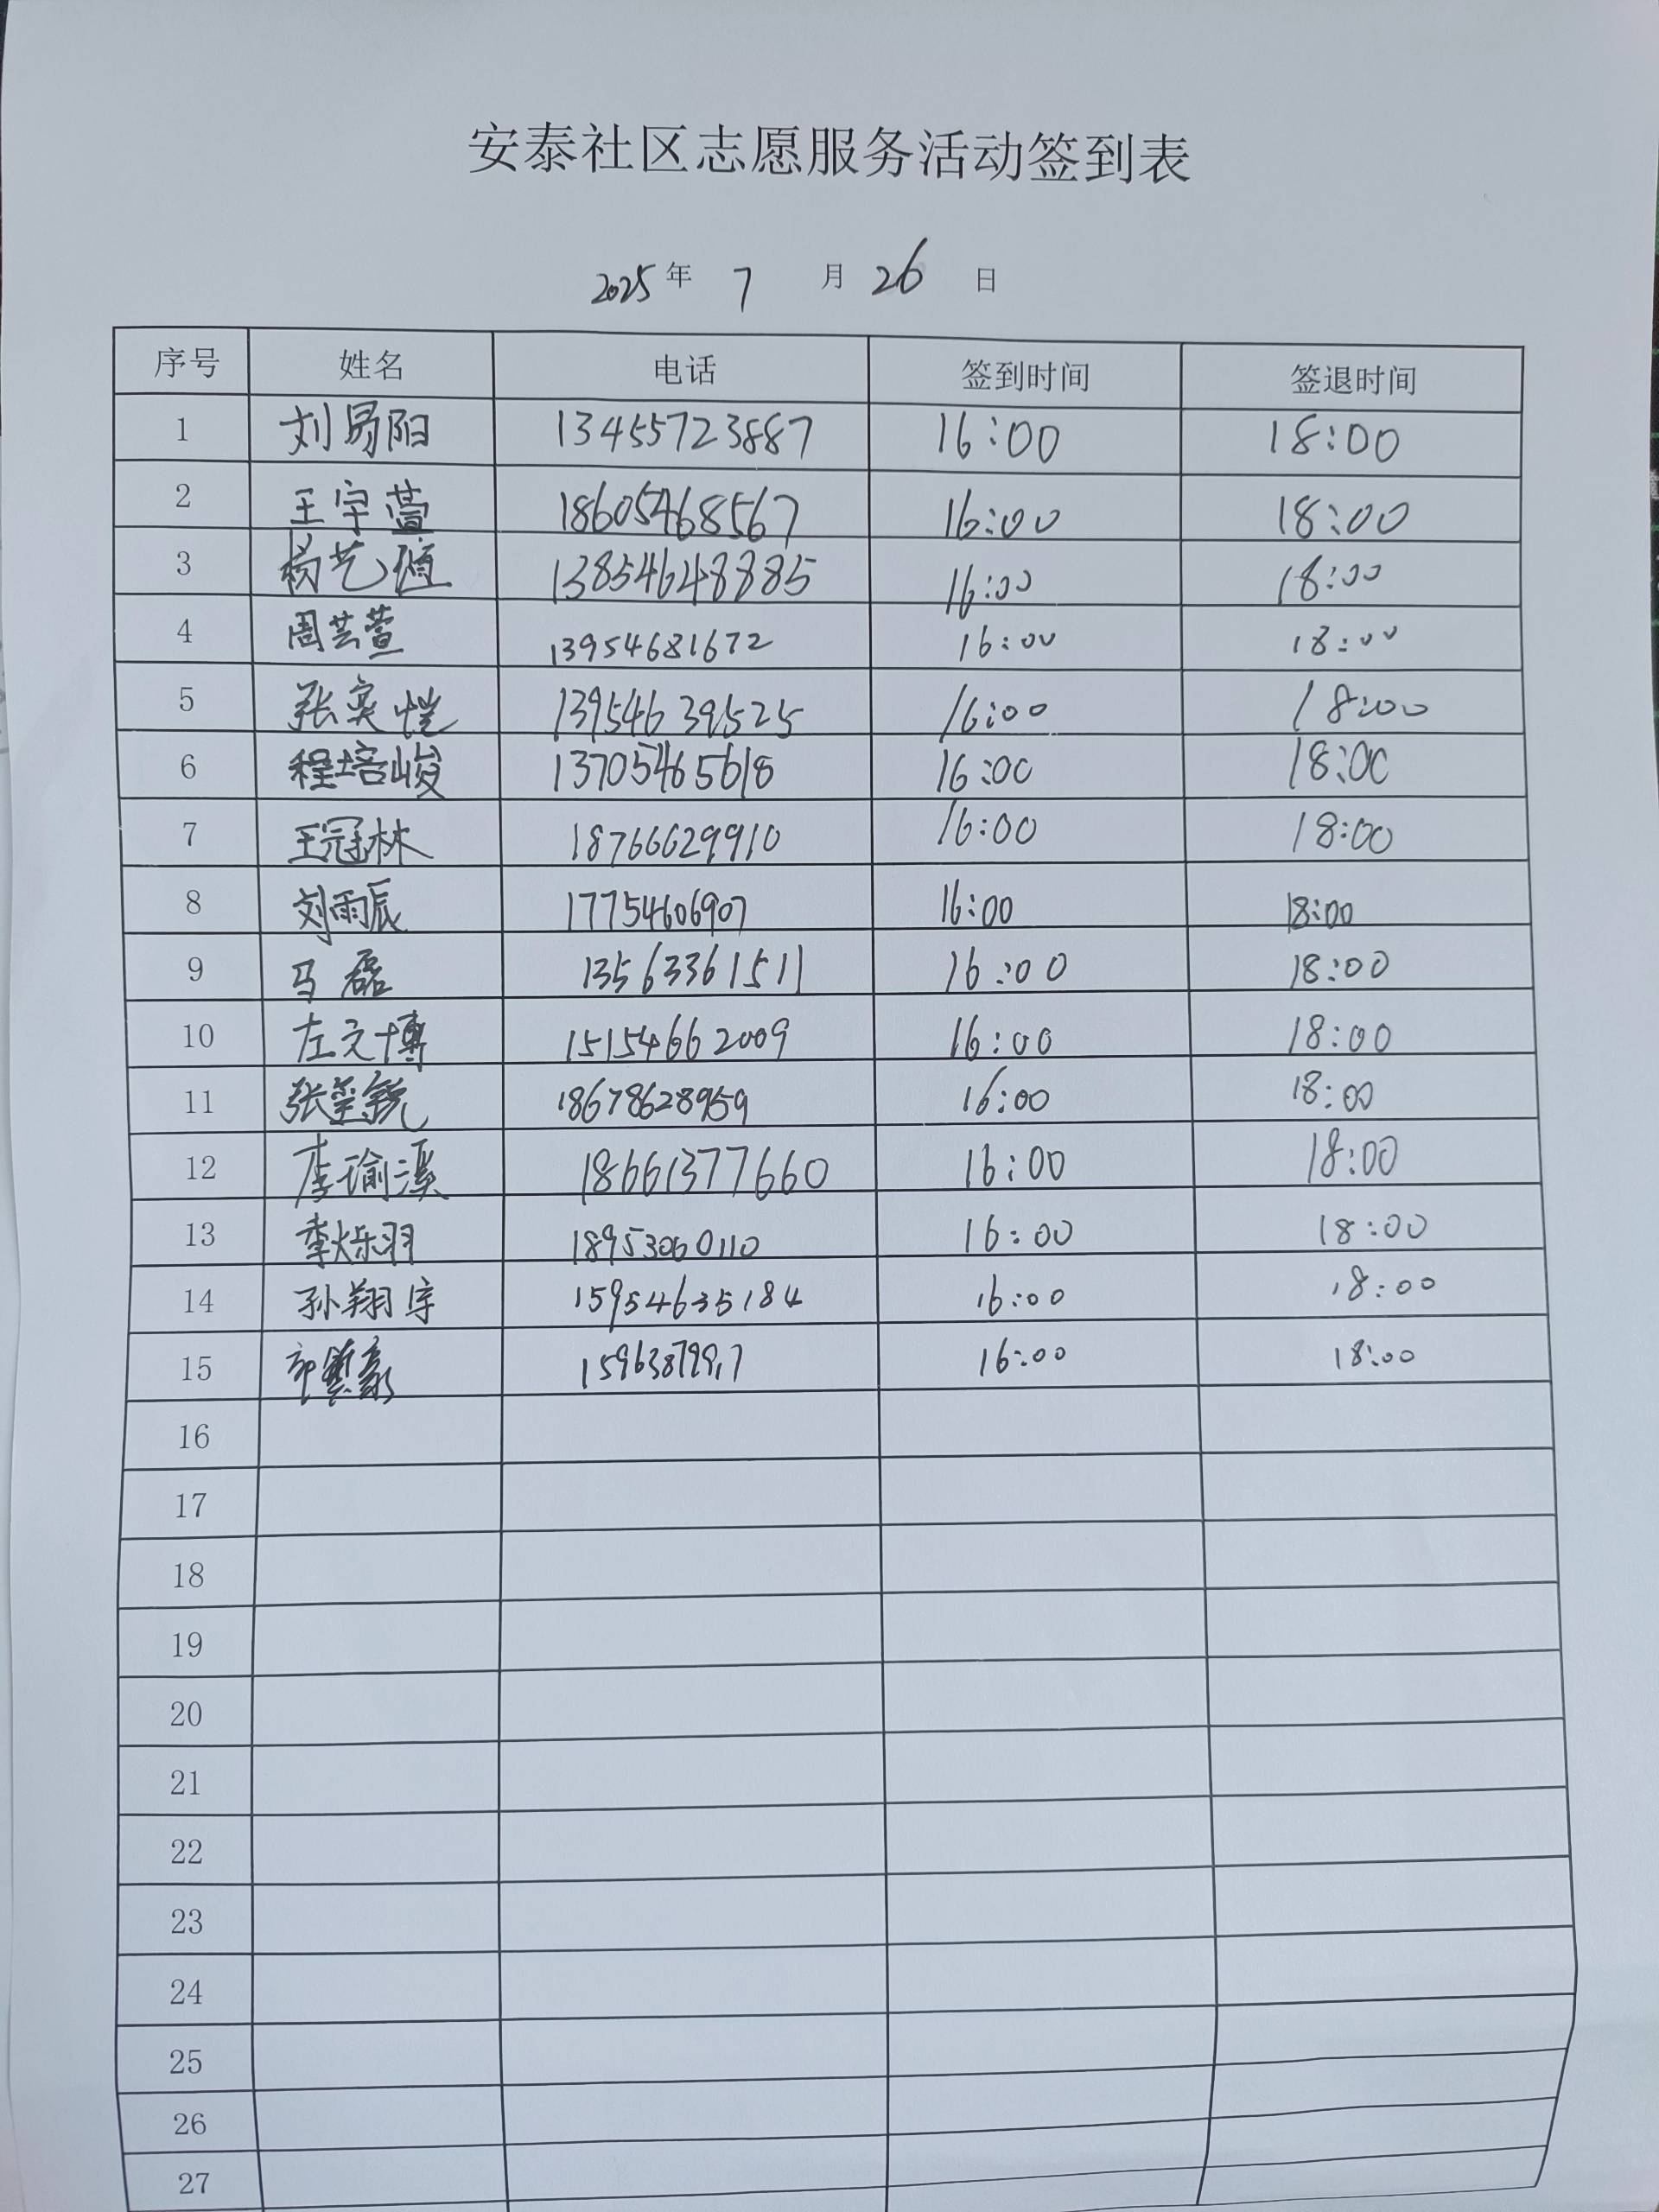 安泰社区志愿服务活动签到表
2025 年 7 月 26 日
序号 姓名 电话 签到时间 签退时间
1 刘易阳 13455723887 16:00 18:00
2 王宇萱 18605468567 16:00 18:00
3 杨艺 13854648885 16:00 18:00
4 周芸萱 13954681672 16:00 18:00
5 张奕恺 13954639525 16:00 18:00
6 程培峻 13705465618 16:00 18:00
7 王冠林 18766629910 16:00 18:00
8 刘雨辰 17754606907 16:00 18:00
9 马磊 13563361511 16:00 18:00
10 左文博 15154662009 16:00 18:00
11 张玺锐 18678628959 16:00 18:00
12 李瑜溪 18661377660 16:00 18:00
13 李烁羽 18953060110 16:00 18:00
14 孙翔宇 15954635184 16:00 18:00
15 16:00 18:00
16
17
18
19
20
21
22
23
24
25
26
27